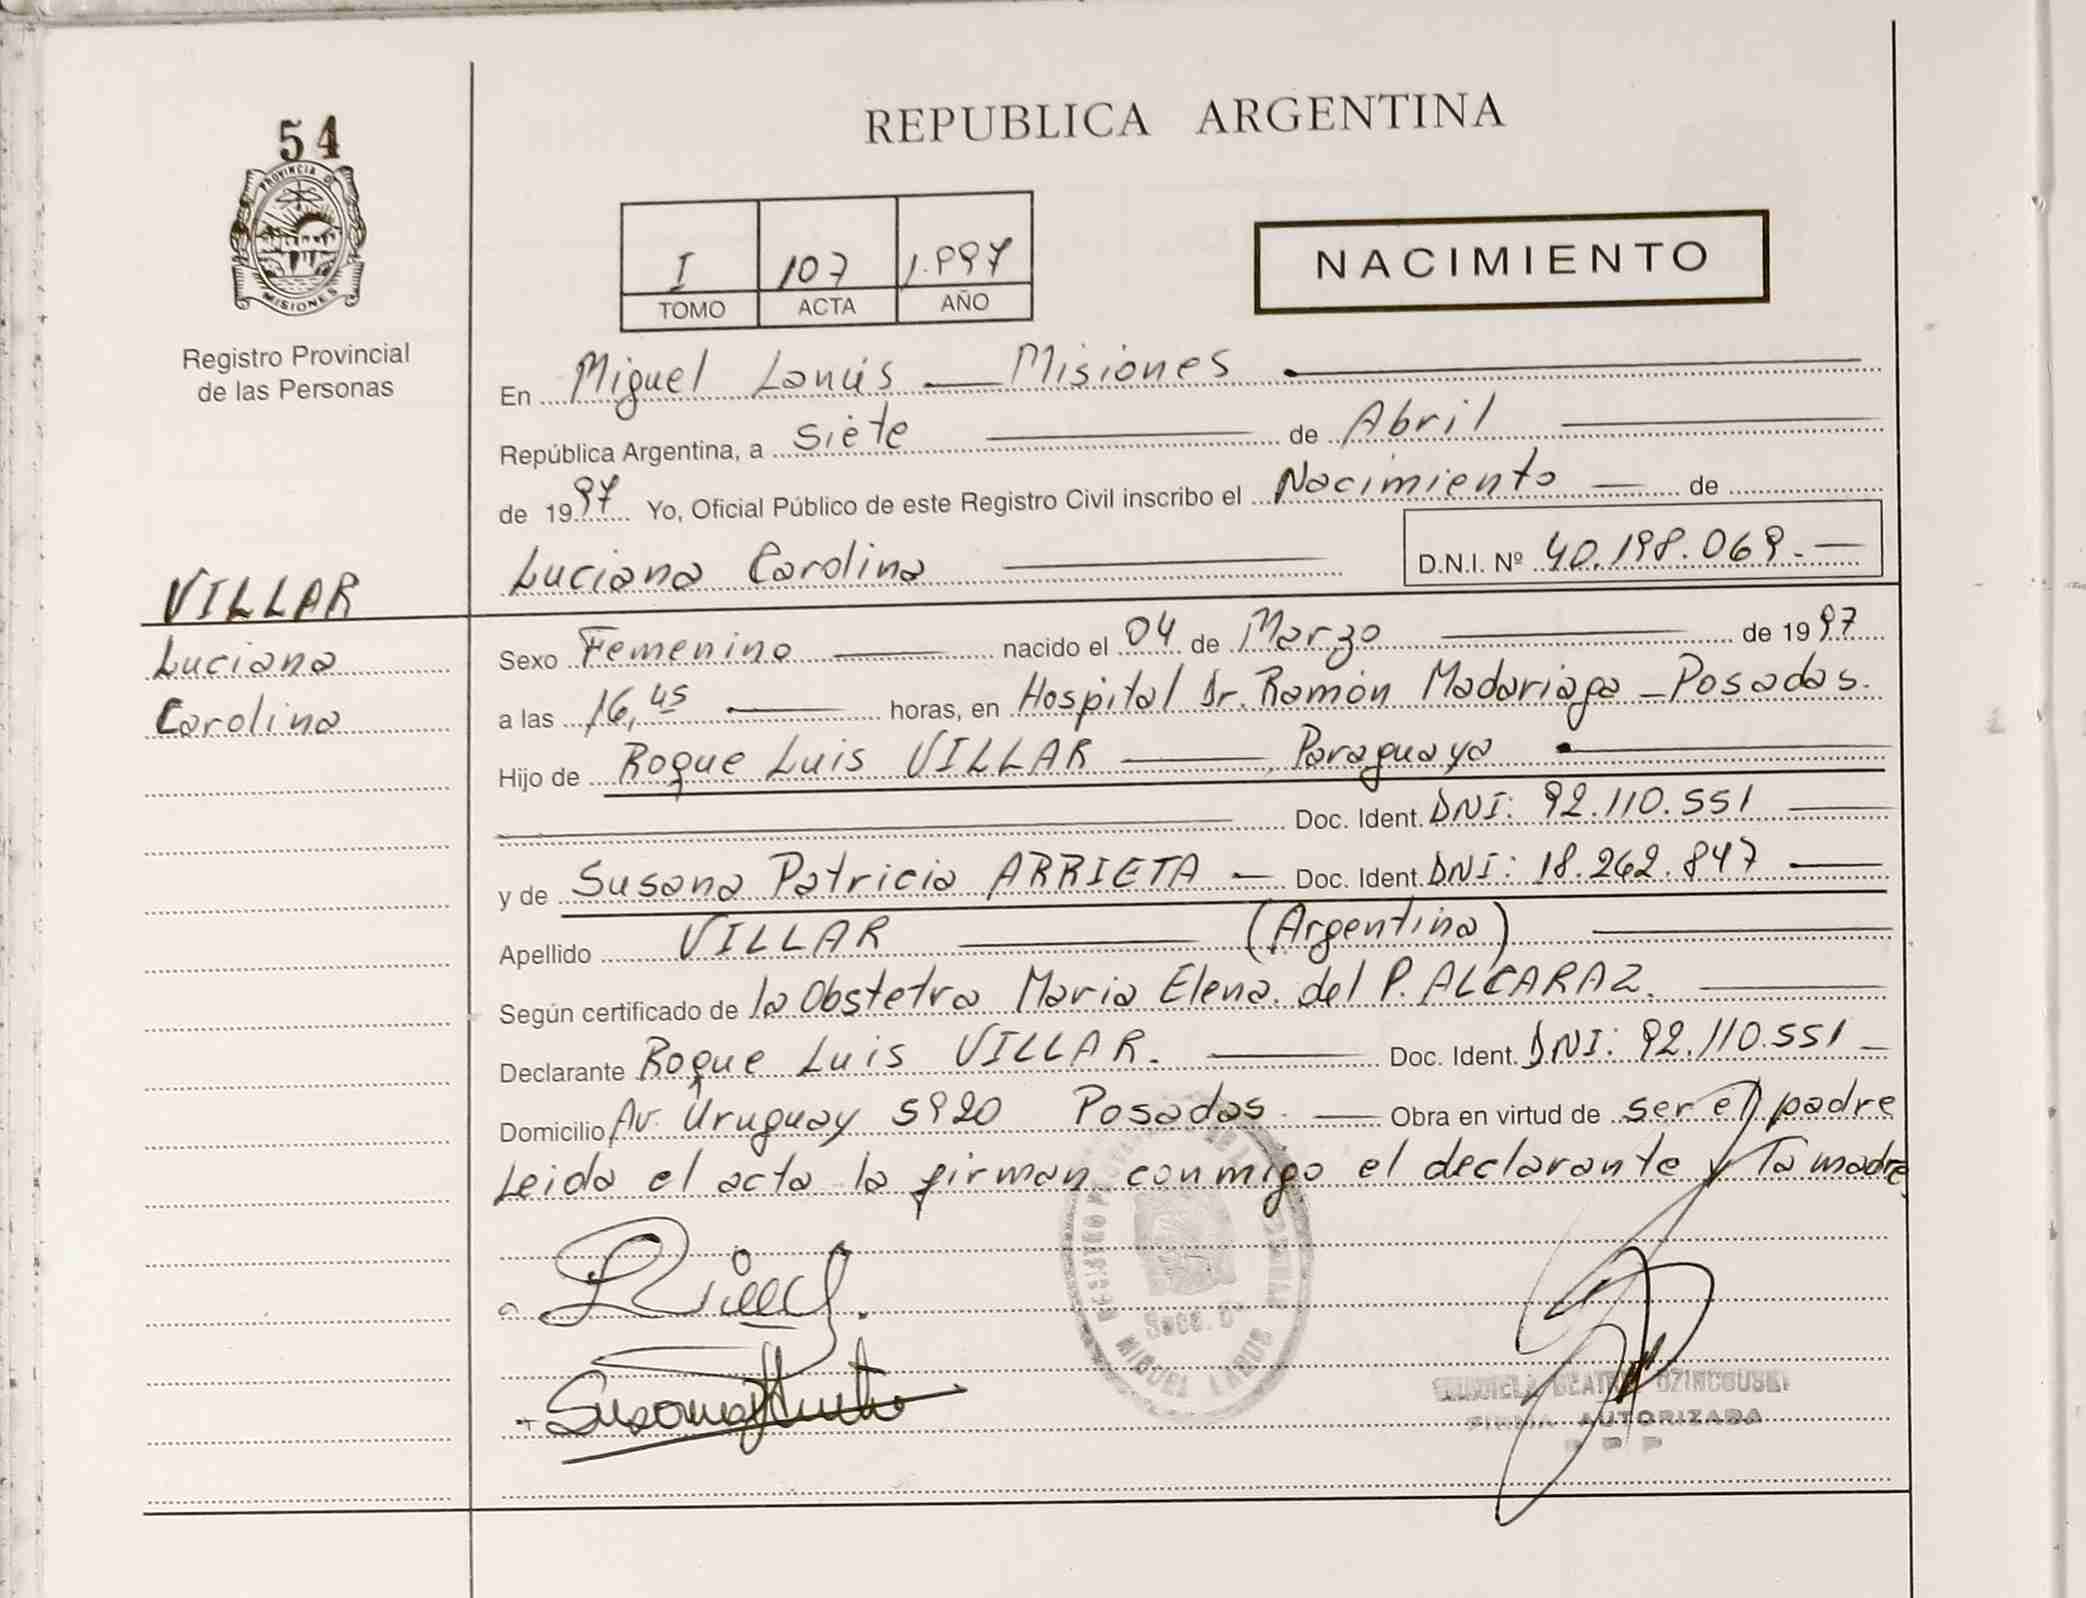 54
PROVINCIA D
MISIONES
Registro Provincial
de las Personas
VILLAR
Luciana
Carolina
REPUBLICA ARGENTINA
I 107 1.997
TOMO ACTA AÑO
NACIMIENTO
En Miguel Lanús — Misiones
República Argentina, a siete de Abril
de 1997 Yo, Oficial Público de este Registro Civil inscribo el Nacimiento — de
Luciana Carolina D.N.I. Nº 40.198.069.-
Sexo Femenino nacido el 04 de Marzo de 1997
a las 16,45 horas, en Hospital Dr. Ramón Madariaga - Posadas.
Hijo de Roque Luis VILLAR, Paraguayo
Doc. Ident. DNI: 92.110.551
y de Susana Patricia ARRIETA — Doc. Ident. DNI: 18.262.847
Apellido VILLAR (Argentina)
Según certificado de la Obstetra Maria Elena. del P. ALCARAZ.
Declarante Roque Luis VILLAR. Doc. Ident. DNI: 92.110.551 -
Domicilio Av. Uruguay 5920 Posadas. — Obra en virtud de ser el padre
Leida el acta la firman conmigo el declarante y la madre
REGISTRO
Secc. C
MIGUEL LANUS
FIRMA AUTORIZADA